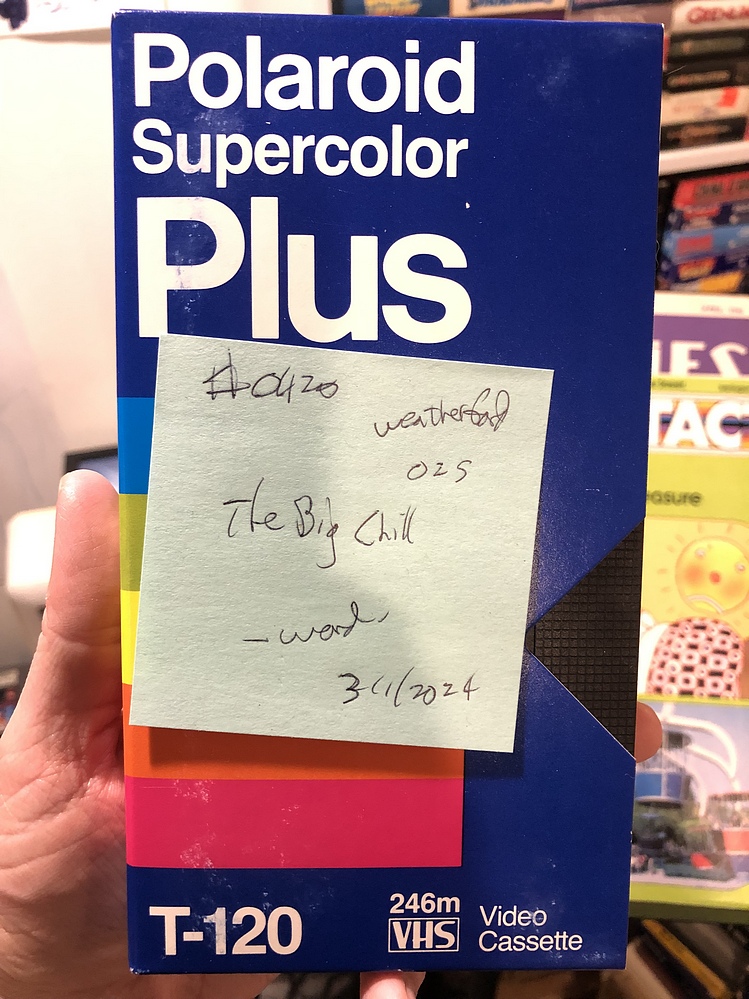 Polaroid
Supercolor
Plus
#0420
weatherford
025
The Big Chill
3/1/2024
T-120
246m
VHS
Video
Cassette
TACT